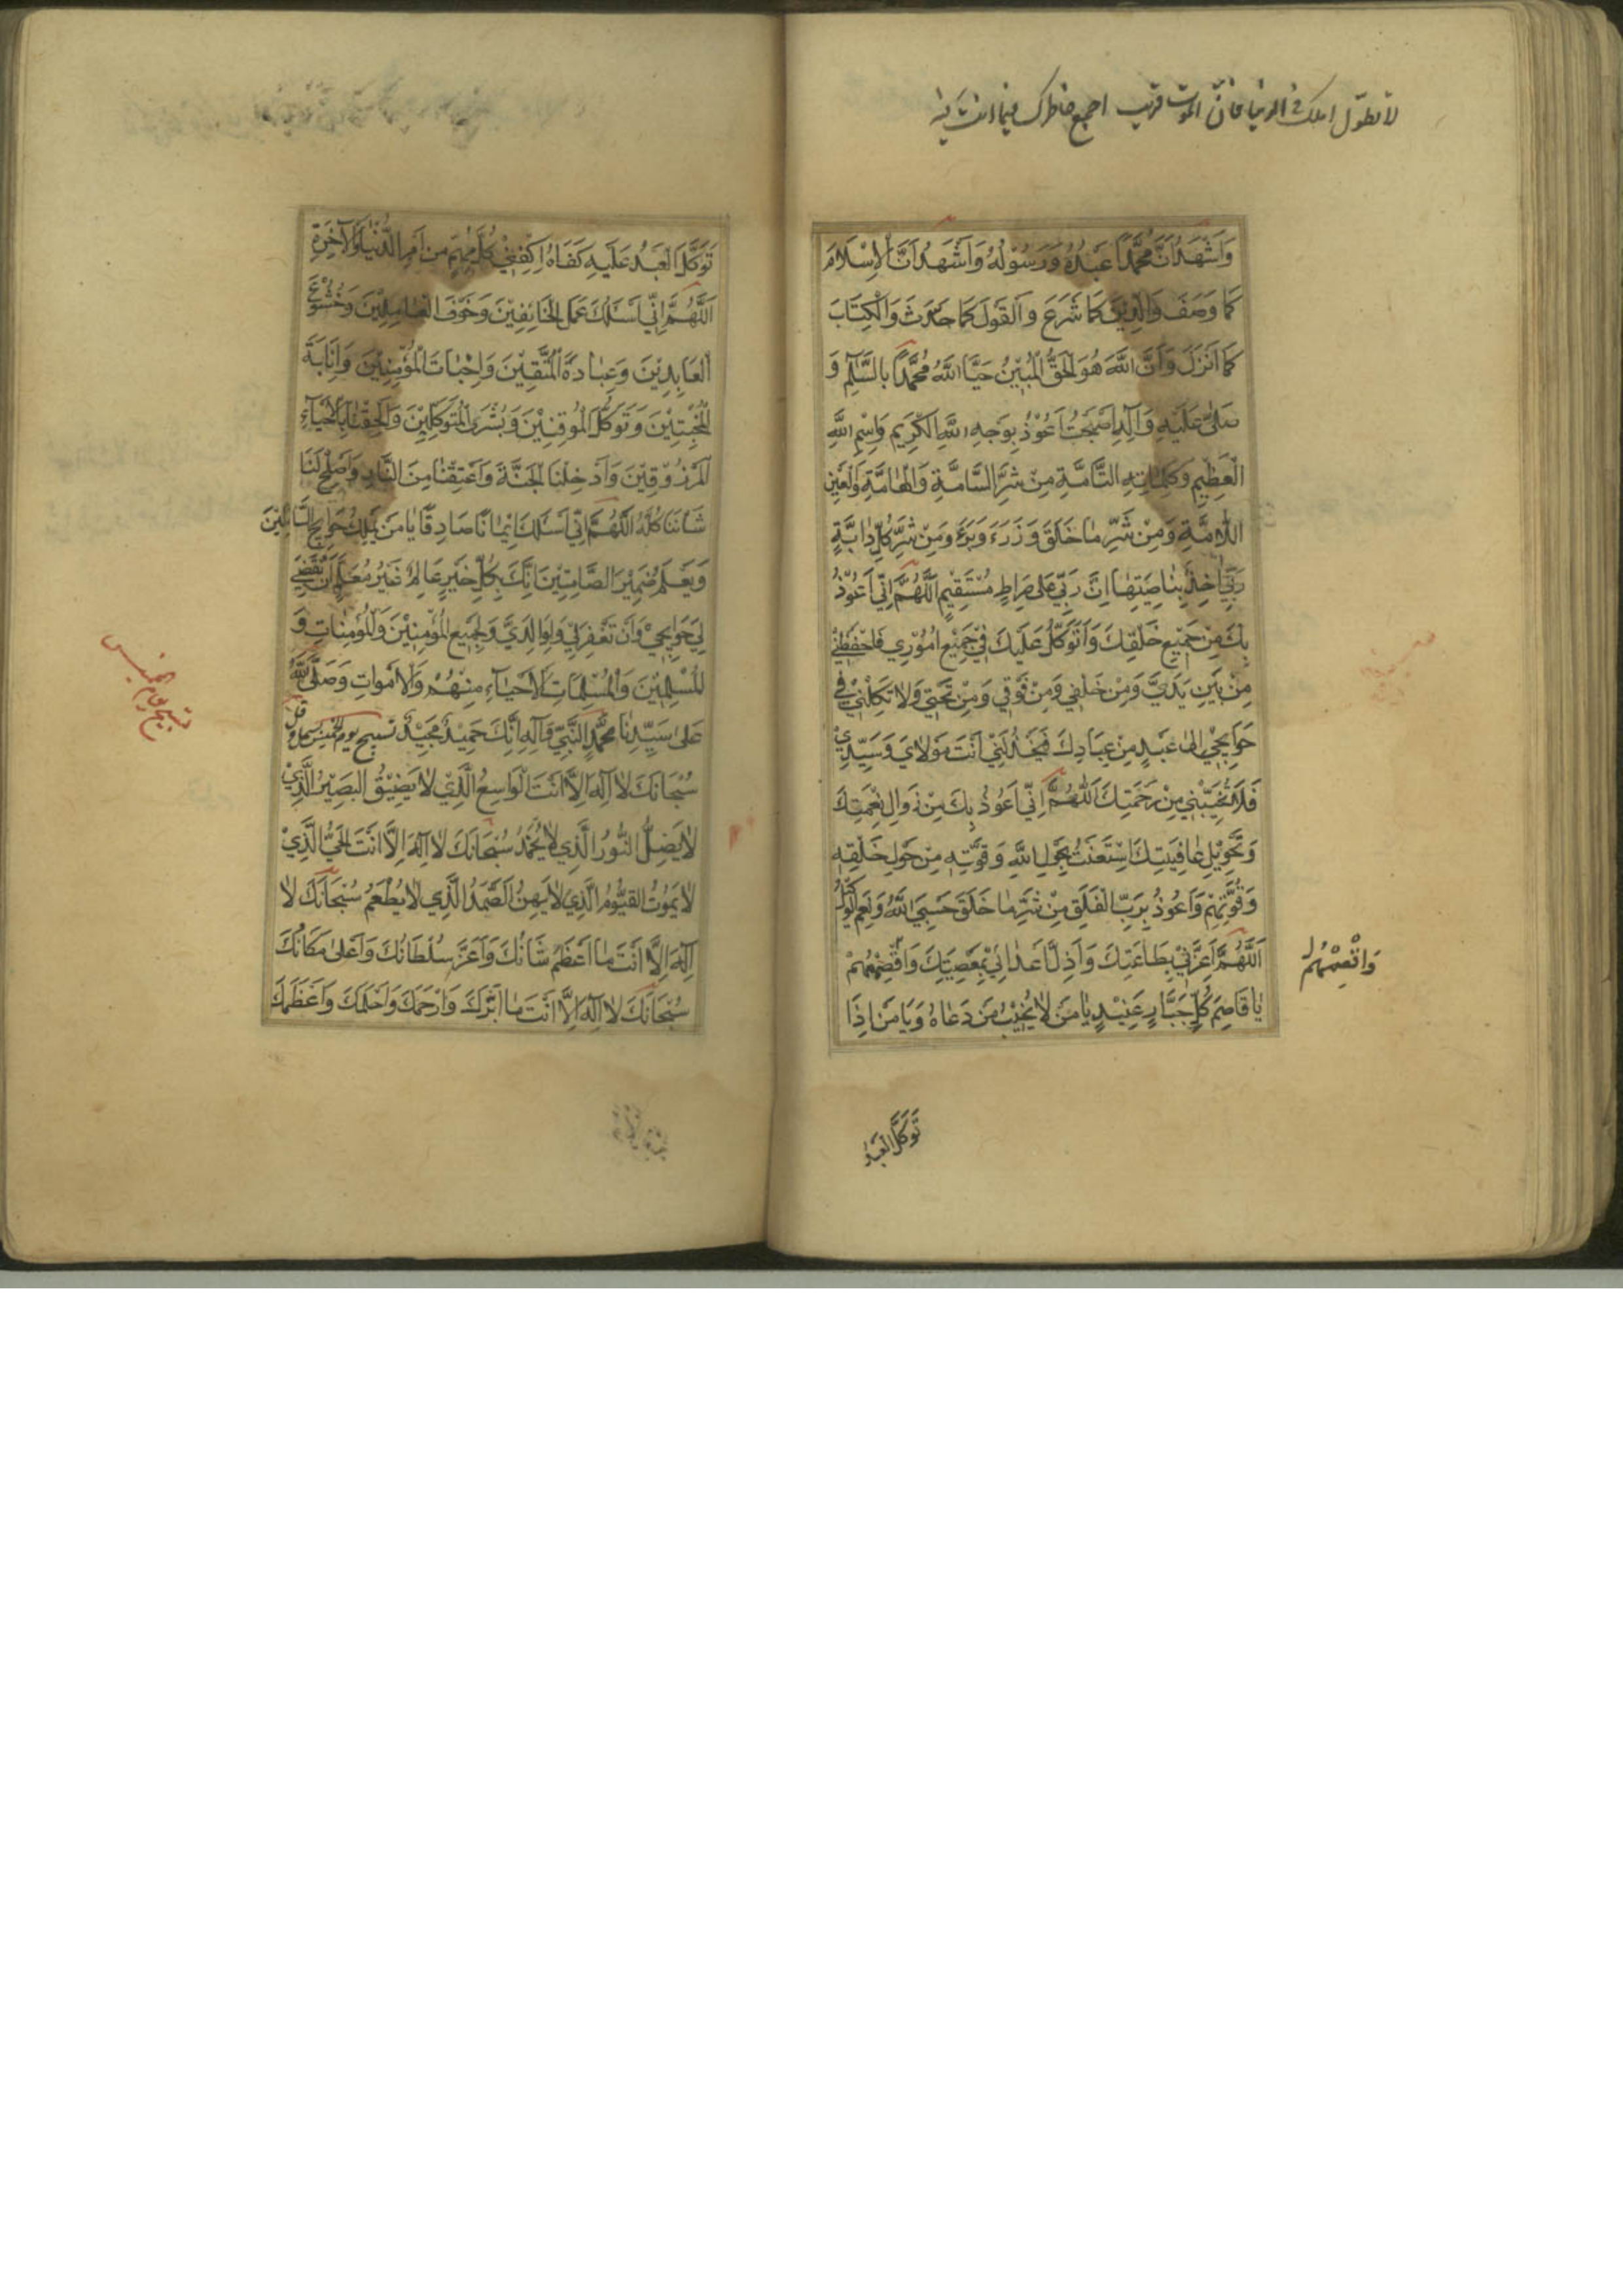 لا تطول املك في الدنيا فان الموت قريب اجمع خاطرك فيما انت
وَاَشْهَدُ اَنَّ مُحَمَّدًا عَبْدُهُ وَرَسُولُهُ وَاَشْهَدُ اَنَّ الْاِسْلَامَ
كَمَا وَصَفَ وَالدِّيْنَ كَمَا شَرَعَ وَالْقَوْلَ كَمَا حَدَّثَ وَالْكِتَابَ
كَمَا اَنْزَلَ وَاَنَّ اللّٰهَ هُوَ الْحَقُّ الْمُبِيْنُ حَيَّا اللّٰهُ مُحَمَّدًا بِالسَّلَامِ وَ
صَلّٰى عَلَيْهِ وَآلِهِ اَصْبَحْتُ اَعُوْذُ بِوَجْهِ اللّٰهِ الْكَرِيْمِ وَاِسْمِ اللّٰهِ
الْعَظِيْمِ وَكَلِمَاتِهِ التَّامَّةِ مِنْ شَرِّ السَّامَّةِ وَالْهَامَّةِ وَالْعَيْنِ
اللَّامَّةِ وَمِنْ شَرِّ مَا خَلَقَ وَذَرَءَ وَبَرَءَ وَمِنْ شَرِّ كُلِّ دَابَّةٍ
رَبِّيْ اٰخِذٌ بِنَاصِيَتِهَا اِنَّ رَبِّيْ عَلٰى صِرَاطٍ مُسْتَقِيْمٍ اَللّٰهُمَّ اِنِّيْ اَعُوْذُ
بِكَ مِنْ جَمِيْعِ خَلْقِكَ وَاَتَوَكَّلُ عَلَيْكَ فِيْ جَمِيْعِ اُمُوْرِيْ فَاحْفَظْنِيْ
مِنْ بَيْنِ يَدَيَّ وَمِنْ خَلْفِيْ وَمِنْ فَوْقِيْ وَمِنْ تَحْتِيْ وَلَا تَكِلْنِيْ فِيْ
حَوَائِجِيْ اِلٰى عَبْدٍ مِنْ عِبَادِكَ فَيَخْذُلَنِيْ اَنْتَ مَوْلَايَ وَسَيِّدِيْ
فَلَا تُخَيِّبْنِيْ مِنْ رَحْمَتِكَ اَللّٰهُمَّ اِنِّيْ اَعُوْذُ بِكَ مِنْ زَوَالِ نِعْمَتِكَ
وَتَحْوِيْلِ عَافِيَتِكَ اِسْتَعَنْتُ بِحَوْلِ اللّٰهِ وَقُوَّتِهِ مِنْ حَوْلِ خَلْقِهِ
وَقُوَّتِهِمْ وَاَعُوْذُ بِرَبِّ الْفَلَقِ مِنْ شَرِّ مَا خَلَقَ حَسْبِيَ اللّٰهُ وَنِعْمَ الْوَكِيْلُ
اَللّٰهُمَّ اَعِزَّنِيْ بِطَاعَتِكَ وَاَذِلَّ اَعْدَائِيْ بِمَعْصِيَتِكَ وَاقْصِمْهُمْ
يَا قَاصِمَ كُلِّ جَبَّارٍ عَنِيْدٍ يَا مَنْ لَا يُخَيِّبُ مَنْ دَعَاهُ وَيَا مَنْ اِذَا
تَوَكَّلَ الْعَبْدُ
تَوَكَّلَ الْعَبْدُ عَلَيْهِ كَفَاهُ اِكْفِنِيْ كُلَّ مُهِمٍّ مِنْ اَمْرِ الدُّنْيَا وَالْآخِرَةِ
اَللّٰهُمَّ اِنِّيْ اَسْئَلُكَ عَمَلَ الْخَائِفِيْنَ وَخَوْفَ الْعَامِلِيْنَ وَخُشُوْعَ
الْعَابِدِيْنَ وَعِبَادَةَ الْمُتَّقِيْنَ وَاِخْبَاتَ الْمُؤْمِنِيْنَ وَاِنَابَةَ
الْمُخْبِتِيْنَ وَتَوَكُّلَ الْمُوْقِنِيْنَ وَبُشْرَى الْمُتَوَكِّلِيْنَ وَاَلْحِقْنَا بِالْاَحْيَآءِ
الْمَرْزُوْقِيْنَ وَاَدْخِلْنَا الْجَنَّةَ وَاَعْتِقْنَا مِنَ النَّارِ وَاَصْلِحْ لَنَا
شَأْنَنَا كُلَّهُ اَللّٰهُمَّ اِنِّيْ اَسْئَلُكَ اِيْمَانًا صَادِقًا يَا مَنْ يَمْلِكُ حَوَائِجَ السَّائِلِيْنَ
وَيَعْلَمُ ضَمِيْرَ الصَّامِتِيْنَ اِنَّكَ بِكُلِّ خَيْرٍ عَالِمٌ غَيْرُ مُعَلَّمٍ اَنْ تَقْضِيَ
لِيْ حَوَائِجِيْ وَاَنْ تَغْفِرَ لِيْ وَلِوَالِدَيَّ وَلِجَمِيْعِ الْمُؤْمِنِيْنَ وَالْمُؤْمِنَاتِ وَ
الْمُسْلِمِيْنَ وَالْمُسْلِمَاتِ الْاَحْيَآءِ مِنْهُمْ وَالْاَمْوَاتِ وَصَلَّى اللّٰهُ
عَلٰى سَيِّدِنَا مُحَمَّدٍ النَّبِيِّ وَآلِهِ اِنَّكَ حَمِيْدٌ مَجِيْدٌ تسبيح يوم الخميس بسمل وقل
سُبْحَانَكَ لَا اِلٰهَ اِلَّا اَنْتَ الْوَاسِعُ الَّذِيْ لَا يَضِيْقُ الْبَصِيْرُ الَّذِيْ
لَا يَضِلُّ النُّوْرُ الَّذِيْ لَا يُخْمَدُ سُبْحَانَكَ لَا اِلٰهَ اِلَّا اَنْتَ الْحَيُّ الَّذِيْ
لَا يَمُوْتُ الْقَيُّوْمُ الَّذِيْ لَا يَهِنُ الصَّمَدُ الَّذِيْ لَا يُطْعَمُ سُبْحَانَكَ لَا
اِلٰهَ اِلَّا اَنْتَ مَا اَعْظَمَ شَانَكَ وَاَعَزَّ سُلْطَانَكَ وَاَعْلٰى مَكَانَكَ
سُبْحَانَكَ لَا اِلٰهَ اِلَّا اَنْتَ مَا اَبَرَّكَ وَاَرْحَمَكَ وَاَحْلَمَكَ وَاَعْظَمَكَ